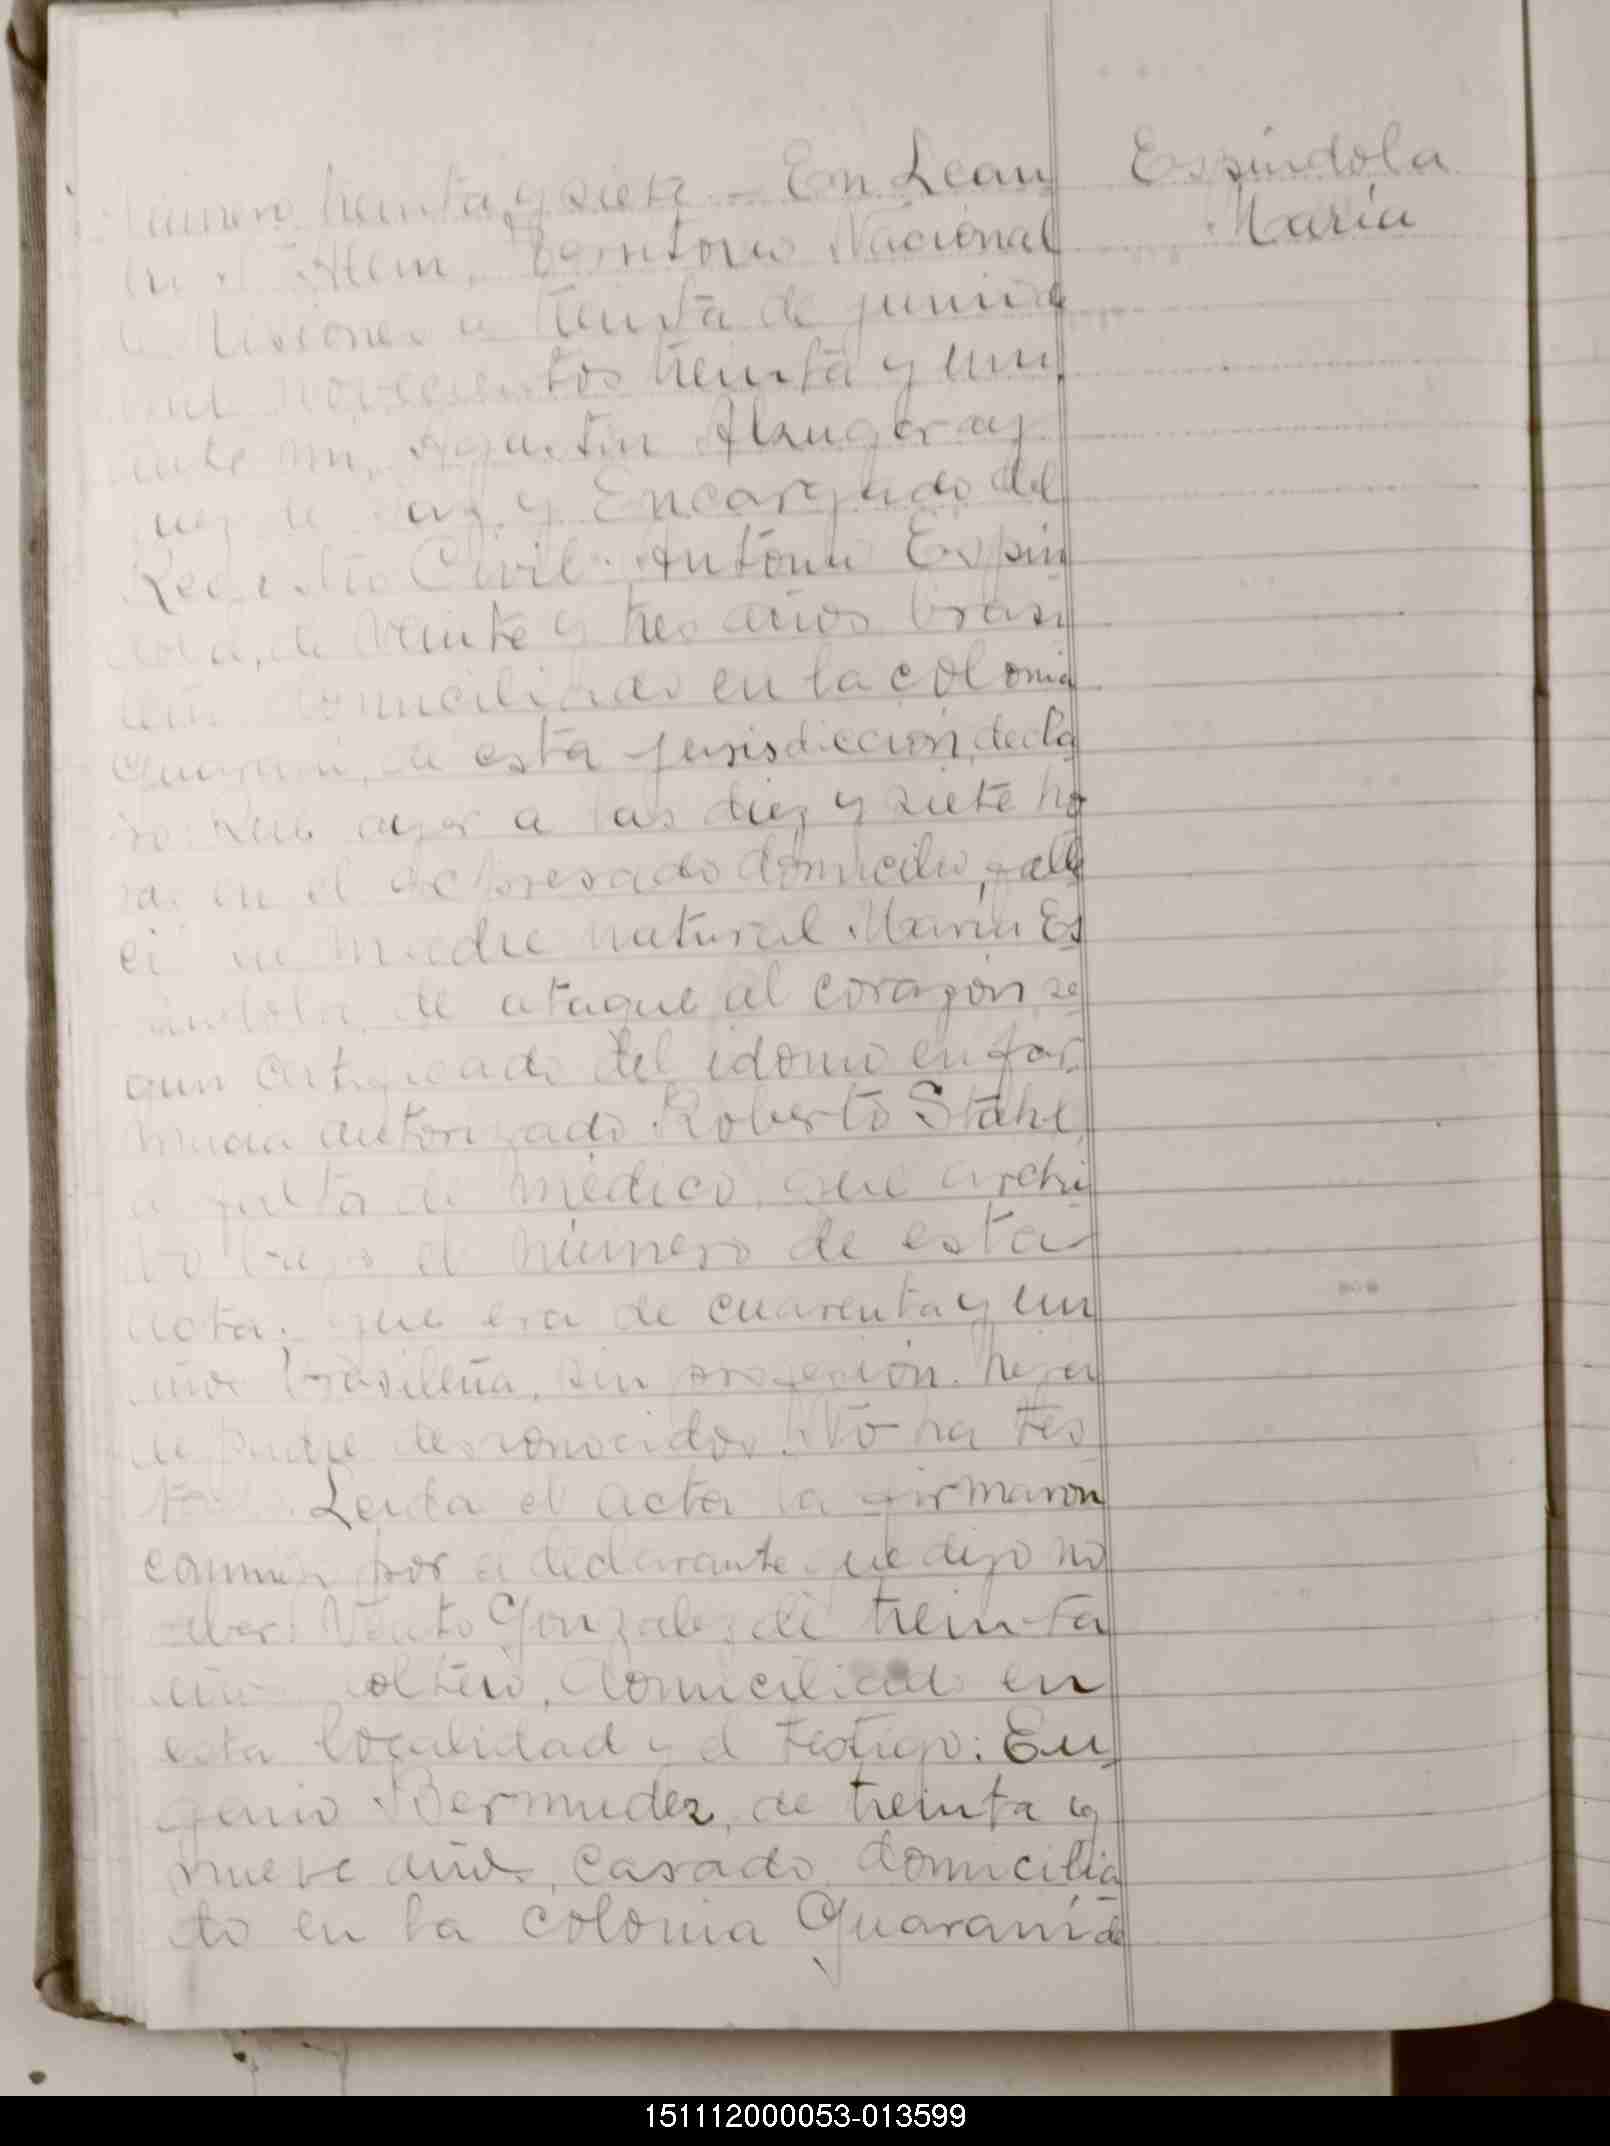 Número treinta y siete – En Lean
Espíndola
María
dro N. Alem, Territorio Nacional
de Misiones a treinta de junio de
mil novecientos treinta y uno
ante mi, Agustin Alzugaray
Juez de Paz y Encargado del
Registro Civil. Antonio Espin
dola, de veinte y tres años brasi
leño domiciliado en la colonia
Guaraní, de esta jurisdicción, decla
ro: que ayer a las diez y siete ho
ras en el expresado domicilio, falle
ció su madre natural María Es
pindola, de ataque al corazón, se
gun certificado del idoneo en far
macia autorizado Roberto Stahl
a falta de médico, que archi
vo bajo el número de esta
acta, que era de cuarenta y un
años brasileña, sin profesión hija
de padre desconocidos. No ha tes
tado. Leida el acta la firmaron
conmigo por el declarante que dijo no
saber: Gonzalez de treinta
años soltero, domiciliado en
esta localidad y el testigo: Eu
genio Bermudez, de treinta y
nueve años, casado, domicilia
do en la colonia Guaraní de
151112000053-013599